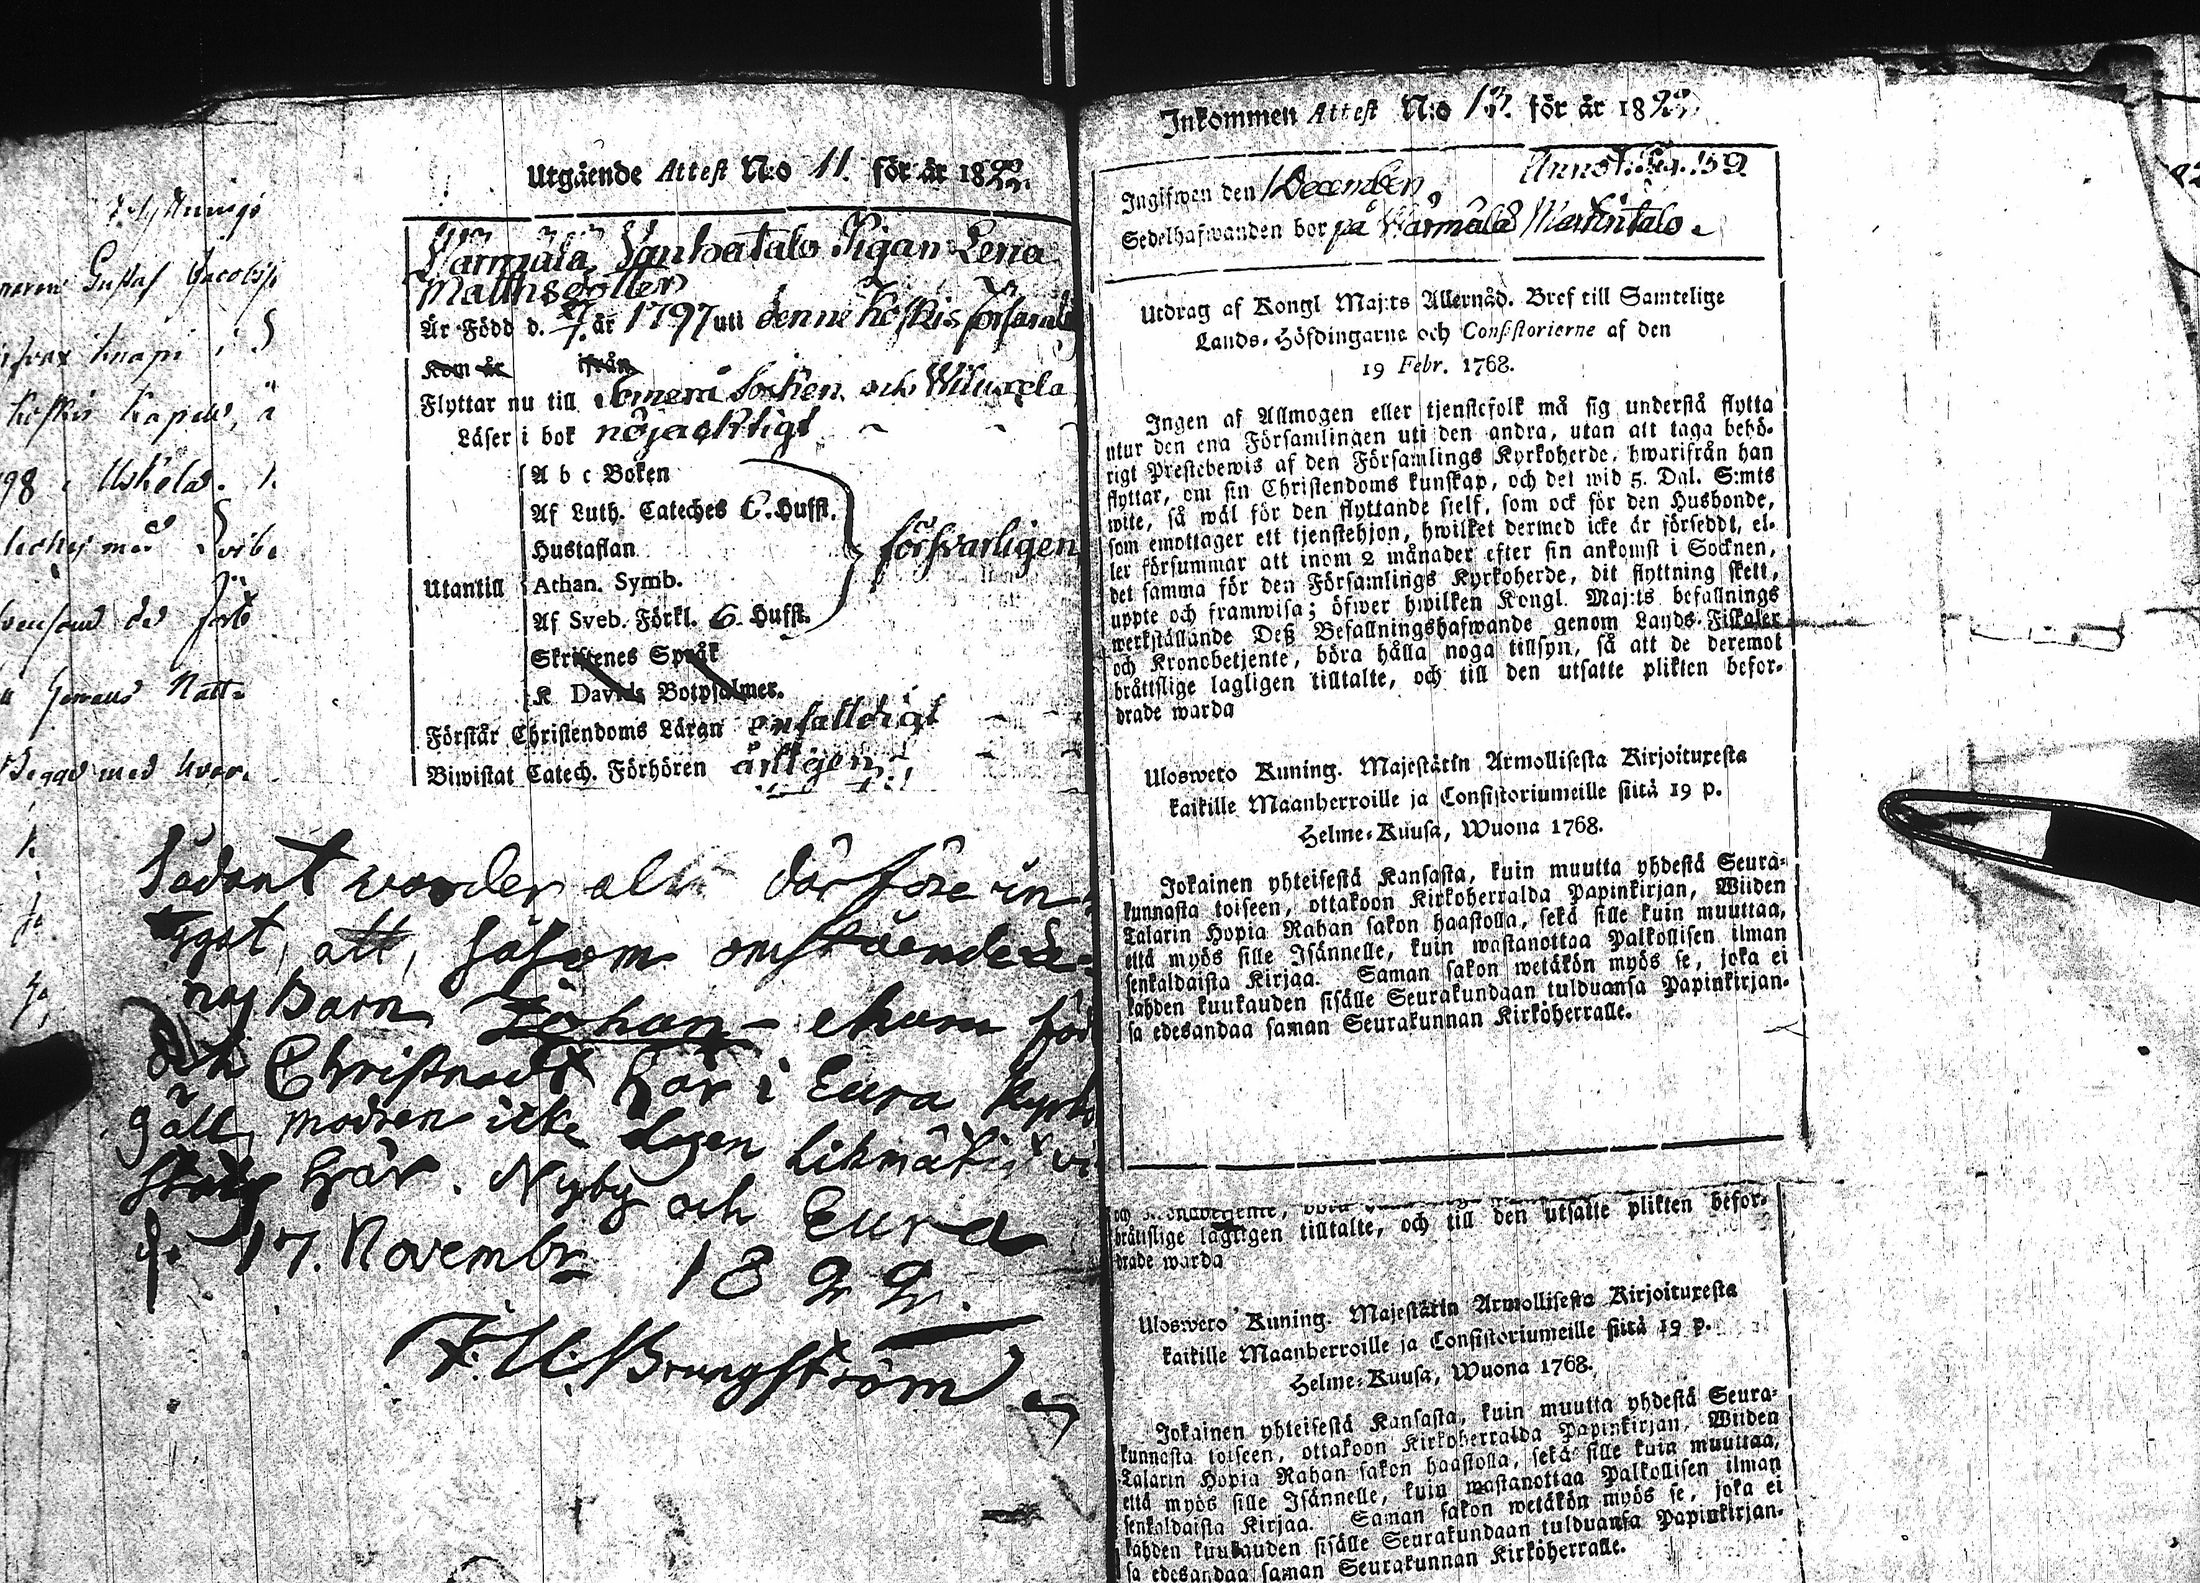 Gustaf Jacobss
Knapi i S
Koskis Kapell, ä
98 i Uskela.
med
Jemens Natt-
Begge med hvar
Utgående Attest N:o 11. för år 1822.
Warmula, Vanhatalo Pigan Lena
Mathsdotter
Är Född d. 27/7. år 1797 uti denne Koskis församl
Kom år ifrån
Flyttar nu till Somero Socken och
Läser i bok nöjacktigt
A b c Boken
Af Luth. Cateches 6. Hufst.
Hustaflan
försvarligen
Utantill
Athan. Symb.
Af Sveb. Förkl. 6. Hufst.
Skriftenes Språk
K Davids Botpsalmer.
Förstår Christendoms Läran enfalldigt
Biwistat Catech. Förhören årligen
Sådant warder allt därföre in-
tygat, att, såsom omstående
Barn Johan ehuru föd
och Christnadt här i Eura Kyrko
gäll, modren icke lagen likmätigt vi
här. Nyby och Eura
d. 17. Novembr 1822.
Bergström
Inkommen Attest N:o 13. för år 1822.
Ingifwen den 1 December. Annot. Pag. 159
Sedelhafwanden bor på Warmala Marttintalo.
Utdrag af Kongl Maj:ts Allernåd. Bref till Samtelige
Lands-Höfdingarne och Consistorierne af den
19 Febr. 1768.
Ingen af Allmogen eller tjenstefolk må sig understå flytta
utur den ena Församlingen uti den andra, utan att taga behö-
rigt Prestebewis af den Församlings Kyrkoherde, hwarifrån han
flyttar, om sin Christendoms kunskap, och det wid 5. Dal. S:mts
wite, så wäl för den flyttande sielf, som ock för den Husbonde,
som emottager ett tjenstehjon, hwilket dermed icke är försedt, el-
ler försummar att inom 2 månader efter sin ankomst i Socknen,
det samma för den Församlings Kyrkoherde, dit flyttning skett,
uppte och framwisa; öfwer hwilken Kongl. Maj:ts befallnings
werkställande Deß Befallningshafwande genom Lands-Fiskaler
och Kronobetjente, böra hålla noga tillsyn, så att de deremot
bråttslige lagligen tilltalte, och till den utsatte plikten befor-
drade warda
Ulosweto Kuning. Majestätin Armollisesta Kirjoituxesta
kaikille Maanherroille ja Consistoriumeille siitä 19 p.
Helme-Kuusa, Wuona 1768.
Jokainen yhteisestä Kansasta, kuin muutta yhdestä Seura-
kunnasta toiseen, ottakoon Kirkoherralda Papinkirjan, Wiiden
Talarin Hopia Rahan sakon haastolla, sekä sille kuin muuttaa,
että myös sille Isännelle, kuin wastanottaa Palkollisen ilman
senkaldaista Kirjaa. Saman sakon wetäkön myös se, joka ei
kahden kuukauden sisälle Seurakundaan tulduansa Papinkirjan-
sa edesandaa saman Seurakunnan Kirköherralle.
bråttslige lagligen tilltalte, och till den utsatte plikten befor-
drade warda
Ulosweto Kuning. Majestätin Armollisesta Kirjoituxesta
kaikille Maanherroille ja Consistoriumeille siitä 19 p.
Helme-Kuusa, Wuona 1768.
Jokainen yhteisestä Kansasta, kuin muutta yhdestä Seura-
kunnasta toiseen, ottakoon Kirkoherralda Papinkirjan, Wiiden
Talarin Hopia Rahan sakon haastolla, sekä sille kuin muuttaa,
että myös sille Isännelle, kuin wastanottaa Palkollisen ilman
senkaldaista Kirjaa. Saman sakon wetäkön myös se, joka ei
kahden kuukauden sisälle Seurakundaan tulduansa Papinkirjan-
sa edesandaa saman Seurakunnan Kirköherralle.